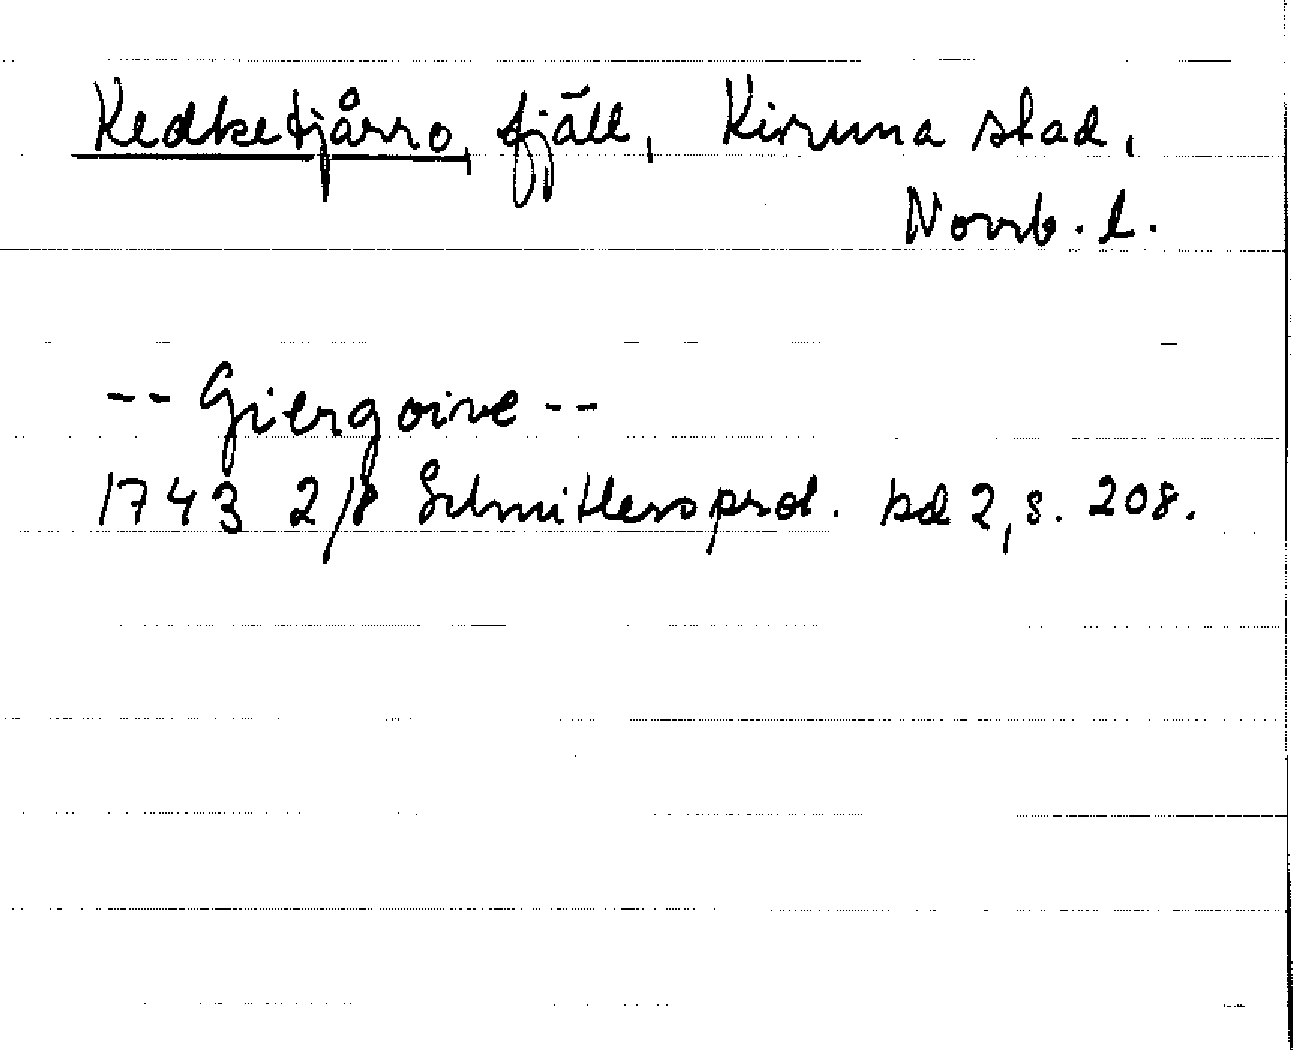 Kedketjårro, fjäll, Kiruna stad,
Norrb. l.
-- Giergoive --
1743 2/8 Schnitlers prot. bd 2, s. 208.